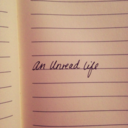 an Unread life